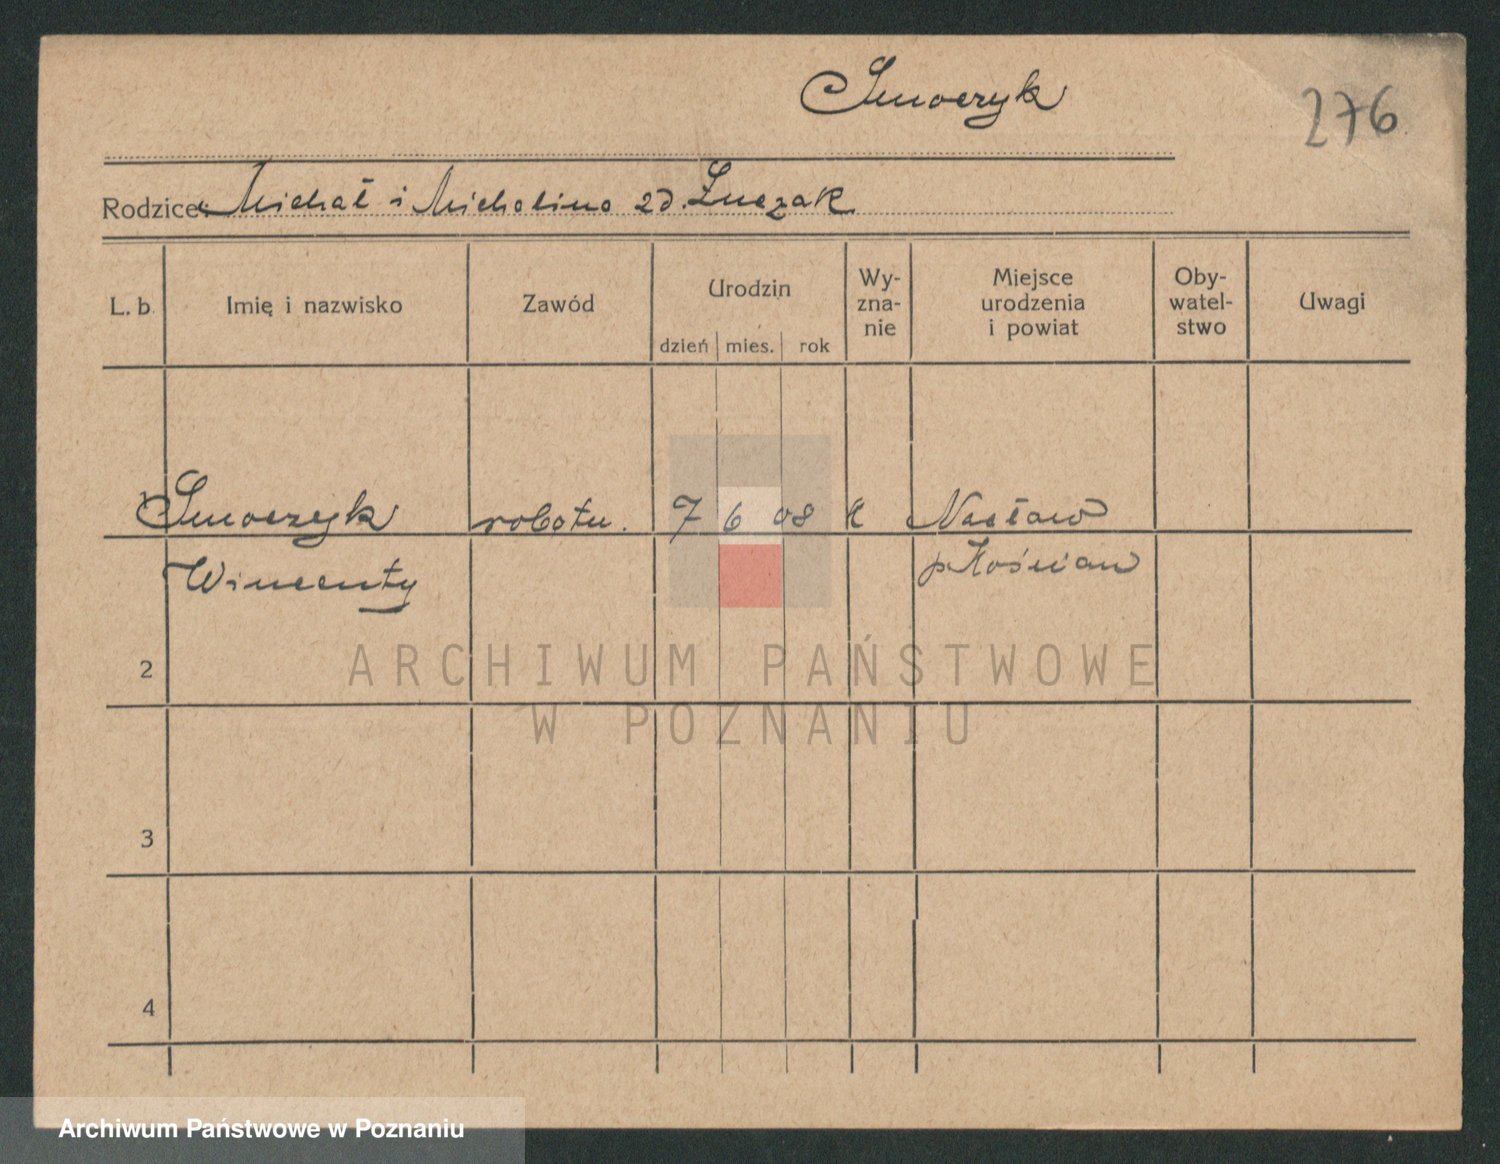 Smoczyk
276
Rodzice: Michał i Michalina zd. Łuczak
L. b. Imię i nazwisko Zawód Urodzin dzień mies. rok Wy-zna-nie Miejsce urodzenia i powiat Oby-watel-stwo Uwagi
1 Smoczyk robotn. 7 6 08 k Nacław
Wincenty p. Kościan
2
ARCHIWUM PAŃSTWOWE
W POZNANIU
3
4
Archiwum Państwowe w Poznaniu